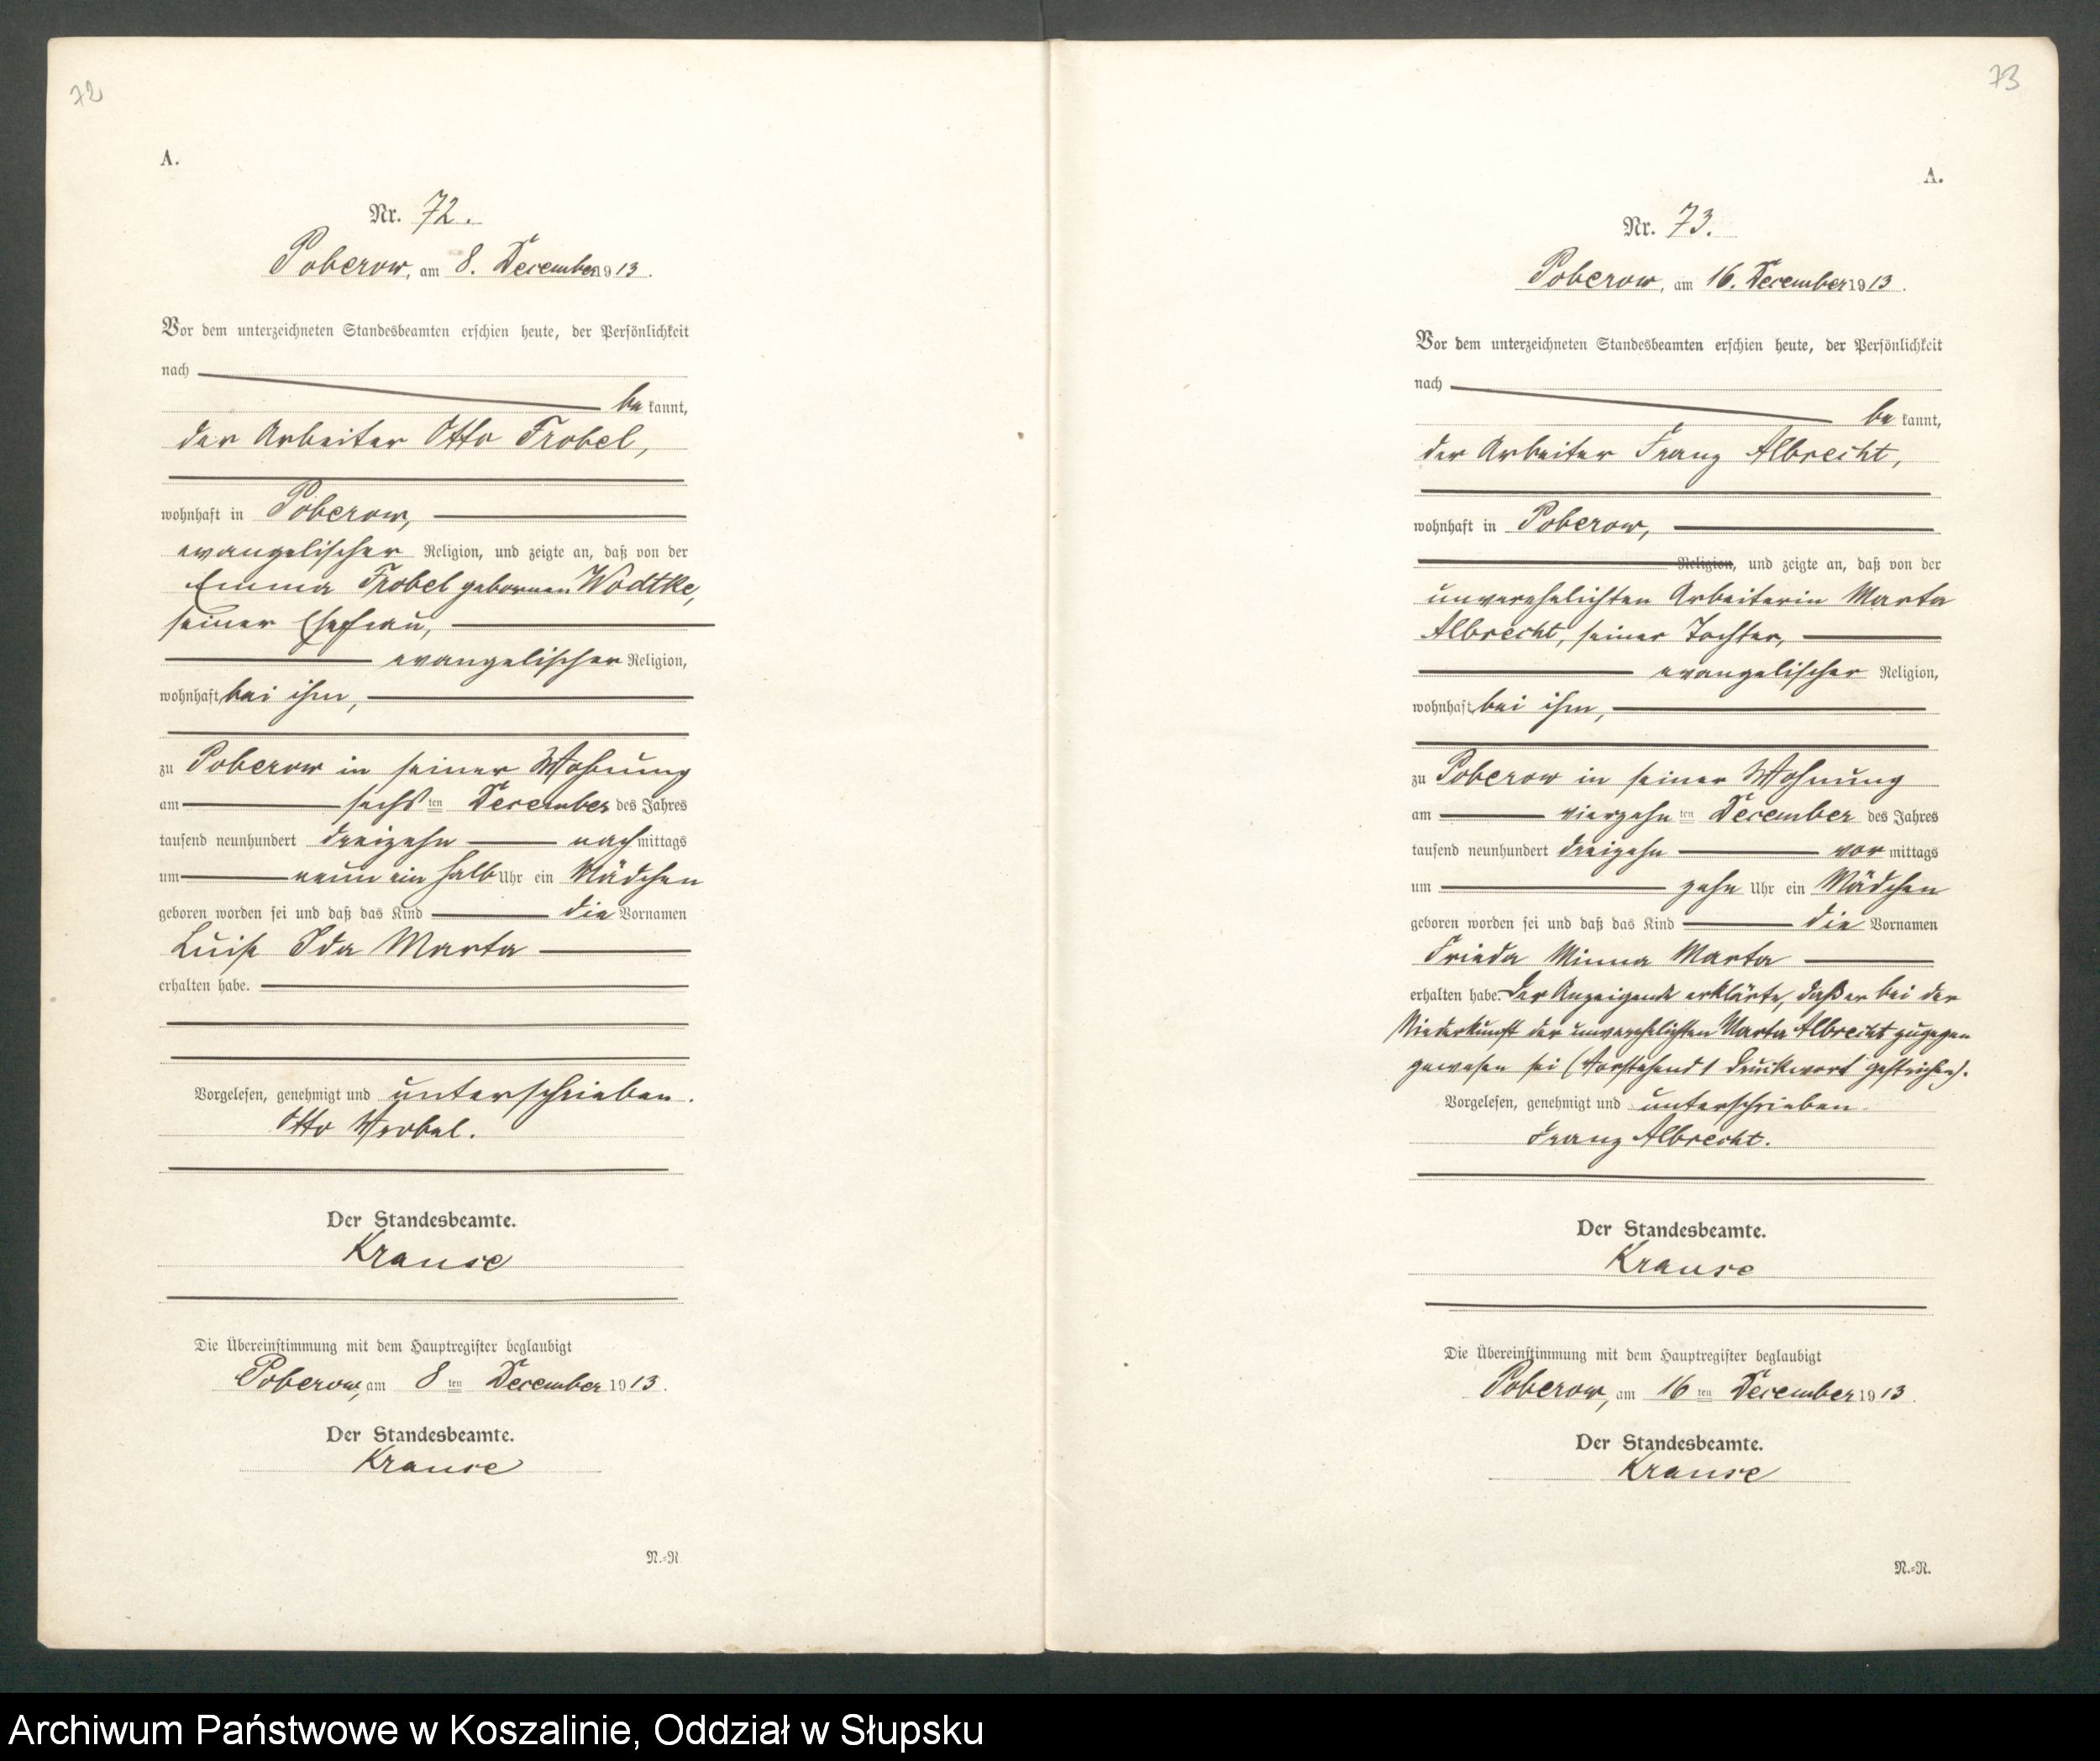 72
A.
Nr. 72.
Poberow, am 8. December 1913.
Vor dem unterzeichneten Standesbeamten erschien heute, der Persönlichkeit
nach
be kannt,
der Arbeiter Otto Frobel,
wohnhaft in Poberow,
evangelischer Religion, und zeigte an, daß von der
Emma Frobel gebornen Wodtke,
seiner Ehefrau,
evangelischer Religion,
wohnhaft bei ihm,
zu Poberow in seiner Wohnung
am sechsten December des Jahres
tausend neunhundert dreizehn nachmittags
um neun ein halb Uhr ein Mädchen
geboren worden sei und daß das Kind die Vornamen
Luise Ida Marta
erhalten habe.
Vorgelesen, genehmigt und unterschrieben.
Otto Wrobel.
Der Standesbeamte.
Krause
Die Übereinstimmung mit dem Hauptregister beglaubigt
Poberow, am 8ten December 1913.
Der Standesbeamte.
Krause
N.=R
73
A.
Nr. 73.
Poberow, am 16. December 1913.
Vor dem unterzeichneten Standesbeamten erschien heute, der Persönlichkeit
nach
be kannt,
der Arbeiter Franz Albrecht,
wohnhaft in Poberow,
Religion, und zeigte an, daß von der
unverehelichten Arbeiterin Marta
Albrecht, seiner Tochter,
evangelischer Religion,
wohnhaft bei ihm,
zu Poberow in seiner Wohnung
am vierzehnten December des Jahres
tausend neunhundert dreizehn vormittags
um zehn Uhr ein Mädchen
geboren worden sei und daß das Kind die Vornamen
Frieda Minna Marta
erhalten habe. Der Anzeigende erklärte, daß er bei der
Niederkunft der unverehelichten Marta Albrecht zugegen
gewesen sei (Vorstehend 1 Druckwort gestrichen).
Vorgelesen, genehmigt und unterschrieben.
Franz Albrecht.
Der Standesbeamte.
Krause
Die Übereinstimmung mit dem Hauptregister beglaubigt
Poberow, am 16ten December 1913.
Der Standesbeamte.
Krause
N.=R.
Archiwum Państwowe w Koszalinie, Oddział w Słupsku